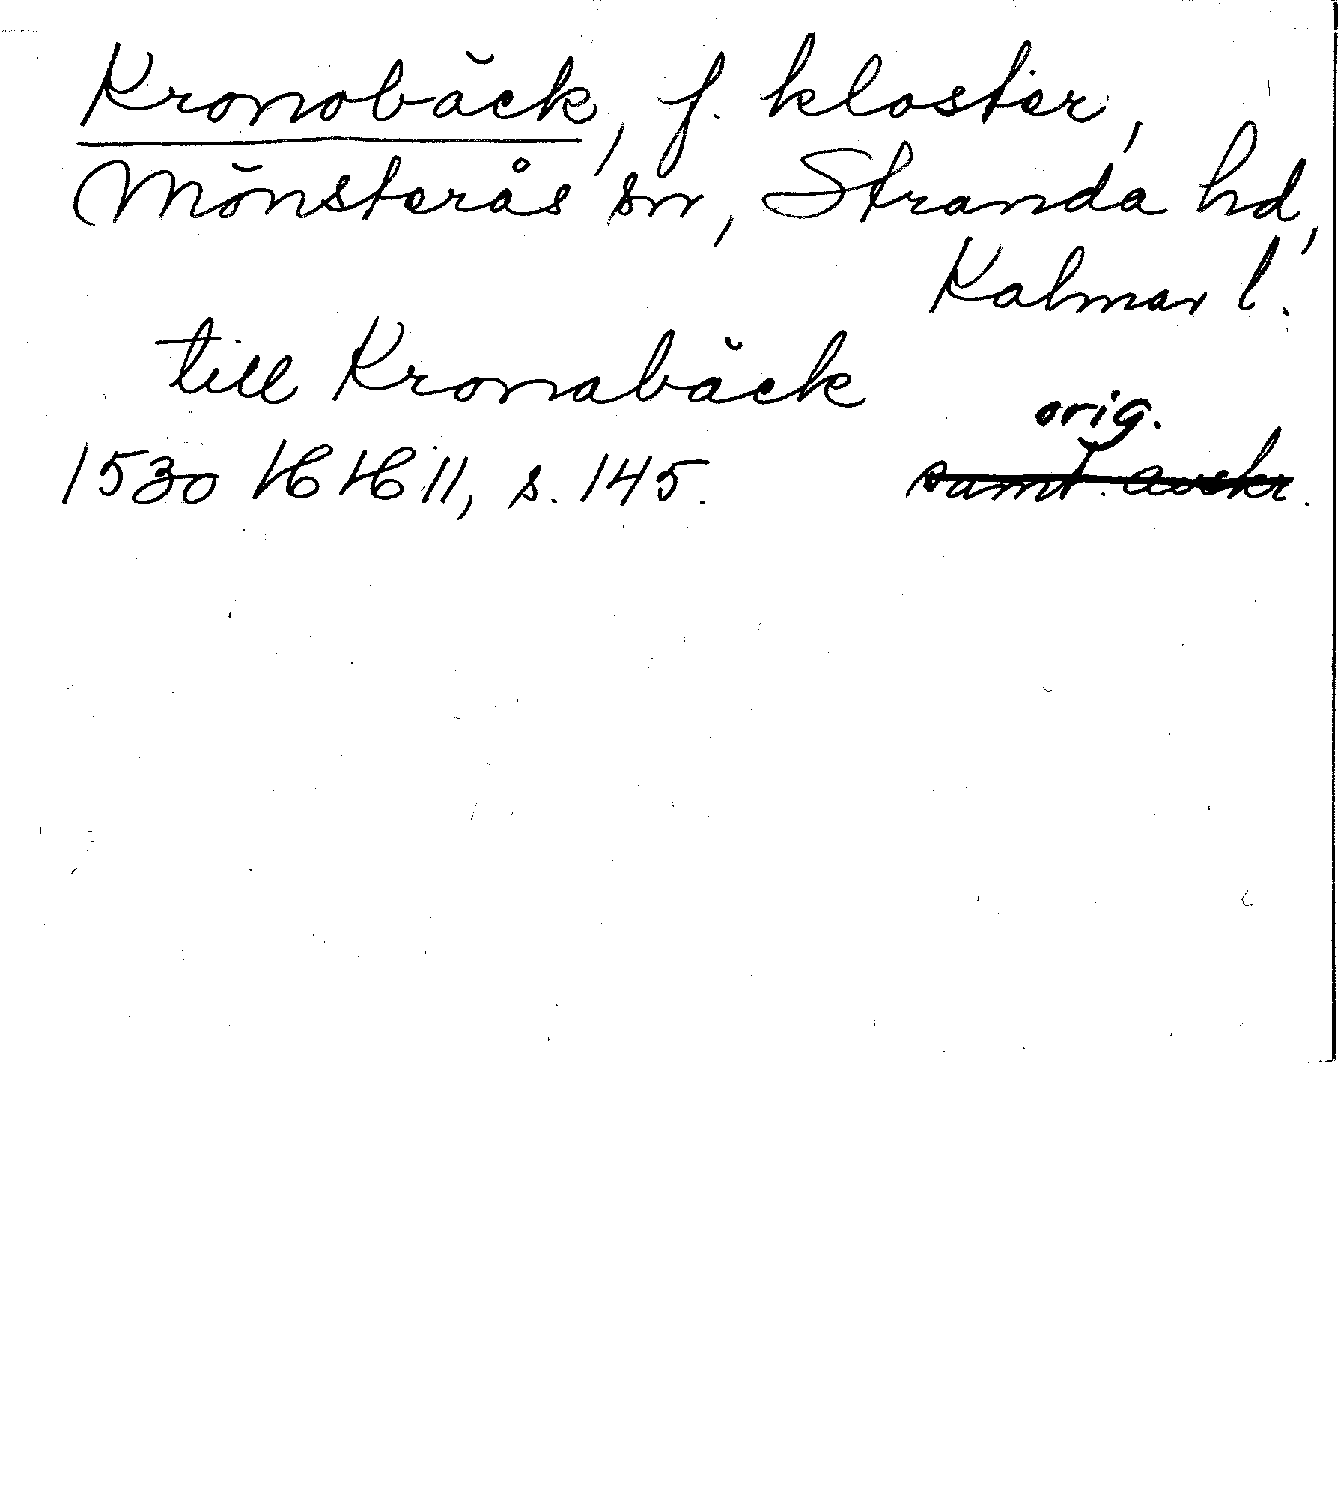 Kronobäck, f. kloster,
Mönsterås sn, Stranda hd,
Kalmar l.
till Kronabäck
orig.
1530 HH 11, s. 145. samt. avskr.